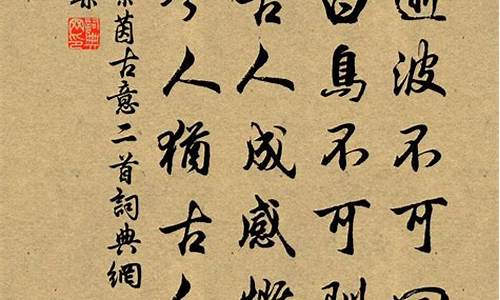 逝波不可回
白鳥不可馴
古人成感慨
今人猶古人
茵古意二首詞典網